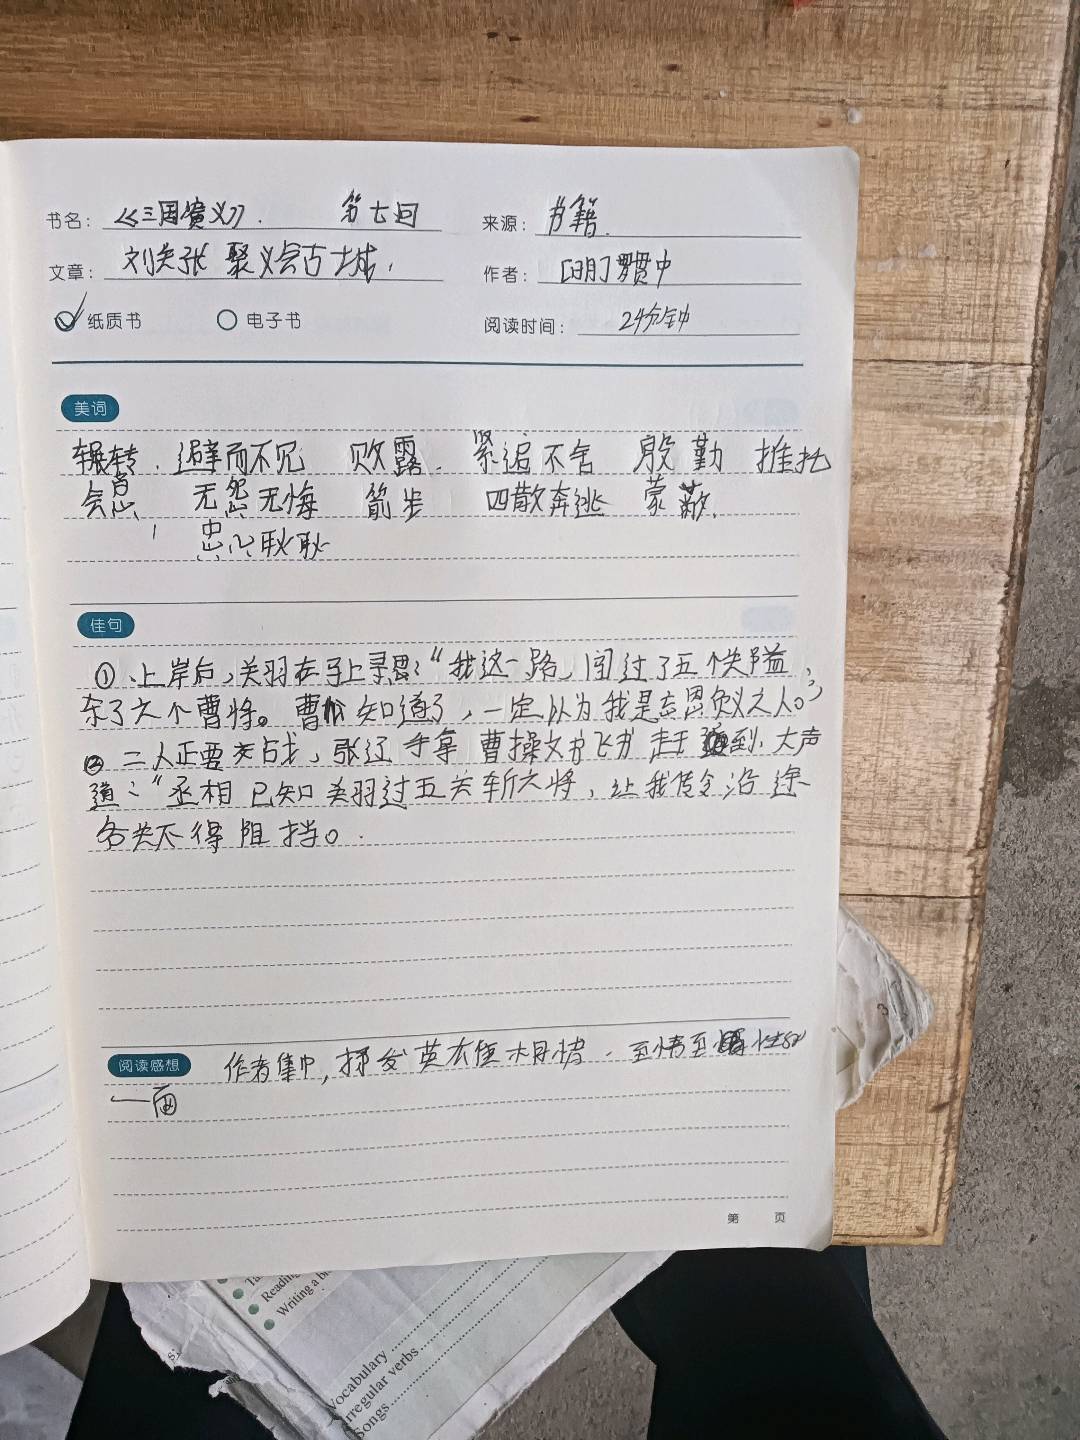 书名：《三国演义》. 第七回 来源：书籍.
文章：刘关张 聚义会古城. 作者：[明]罗贯中
纸质书 电子书 阅读时间：24分钟
美词
辗转. 避而不见 败露. 紧追不舍 殷勤 推托
会意 无怨无悔 箭步 四散奔逃 蒙蔽.
忠心耿耿
佳句
①、上岸后,关羽在马上寻思:“我这一路,闯过了五个关隘,
杀了六个曹将。曹操知道了,一定认为我是忘恩负义之人。”
② 二人正要交战,张辽手拿 曹操文书飞书 赶到.大声
道:“丞相已知关羽过五关斩六将,让我传令沿途
各关不得阻挡。
阅读感想 作者集中,抒发英
一面
第 页
Reading
Writing a
Vocabulary
Irregular verbs
Songs